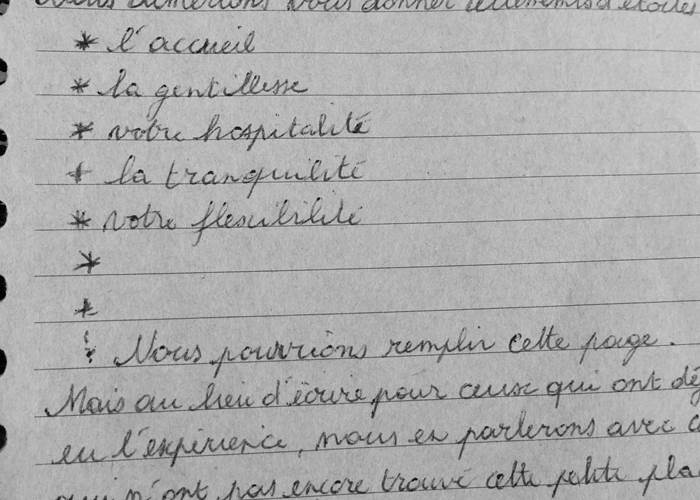 aimerions vous donner tellement d'étoiles
* l'accueil
* la gentillesse
* votre hospitalité
+ la tranquilité
* votre flexibilité
*
*
⋮ Nous pourrions remplir cette page.
Mais au lieu d'écrire pour ceux qui ont dé
eu l'expérience, nous en parlerons avec c
qui n'ont pas encore trouvé cette petite pla